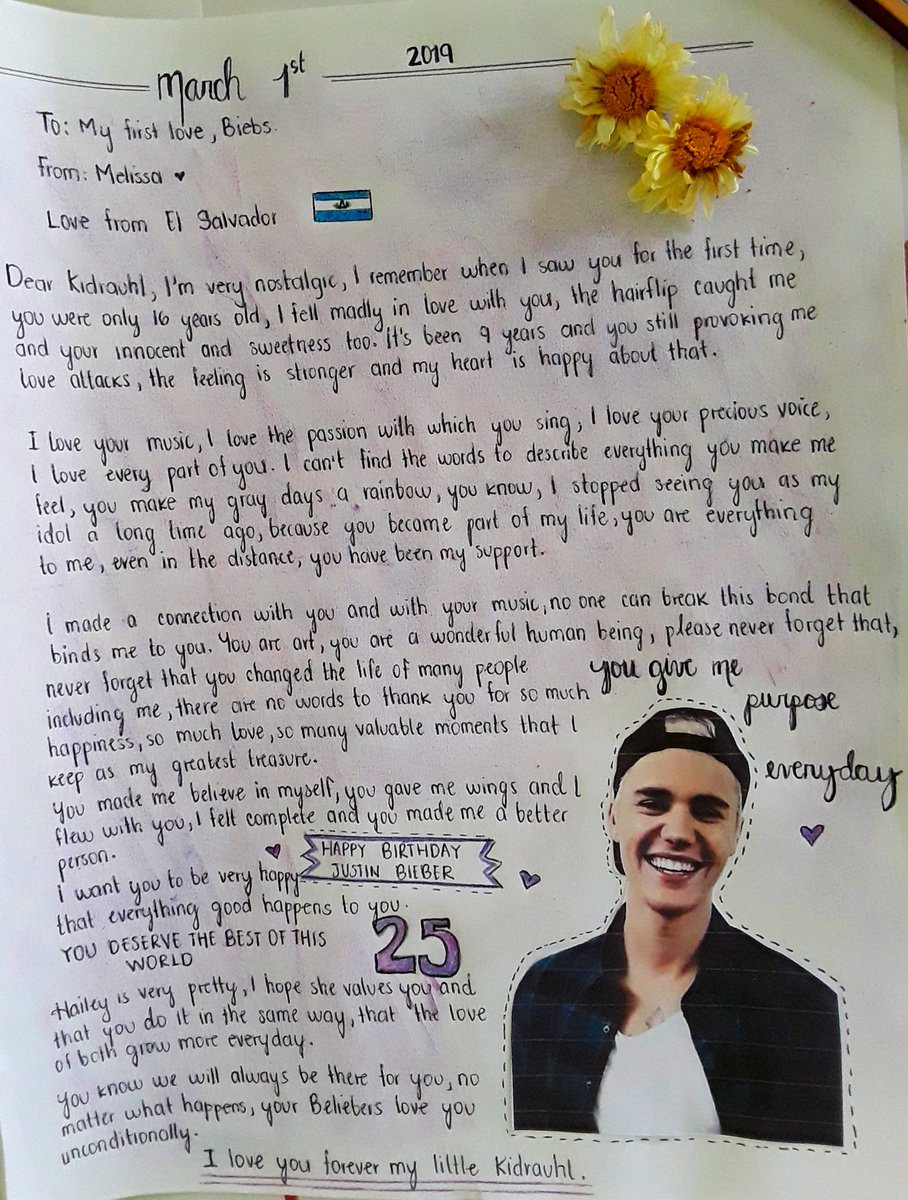 March 1st 2019
To: My first love, Biebs.
From: Melissa ♥
Love from El Salvador
Dear Kidrauhl, I'm very nostalgic, I remember when I saw you for the first time,
you were only 16 years old, I fell madly in love with you, the hairflip caught me
and your innocent and sweetness too. It's been 9 years and you still provoking me
love attacks, the feeling is stronger and my heart is happy about that.
I love your music, I love the passion with which you sing, I love your precious voice,
I love every part of you. I can't find the words to describe everything you make me
feel, you make my gray days a rainbow, you know, I stopped seeing you as my
idol a long time ago, because you became part of my life, you are everything
to me, even in the distance, you have been my support.
i made a connection with you and with your music, no one can break this bond that
binds me to you. You are art, you are a wonderful human being, please never forget that,
never forget that you changed the life of many people
including me, there are no words to thank you for so much
happiness, so much love, so many valuable moments that I
keep as my greatest treasure.
You made me believe in myself, you gave me wings and I
flew with you, I felt complete and you made me a better
person.
you give me
purpose
everyday
HAPPY BIRTHDAY
JUSTIN BIEBER
i want you to be very happy
that everything good happens to you.
25
YOU DESERVE THE BEST OF THIS
WORLD
Hailey is very pretty, I hope she values you and
that you do it in the same way, that the love
of both grow more everyday.
You know we will always be there for you, no
matter what happens, your Beliebers love you
unconditionally.
I love you forever my little Kidrauhl.